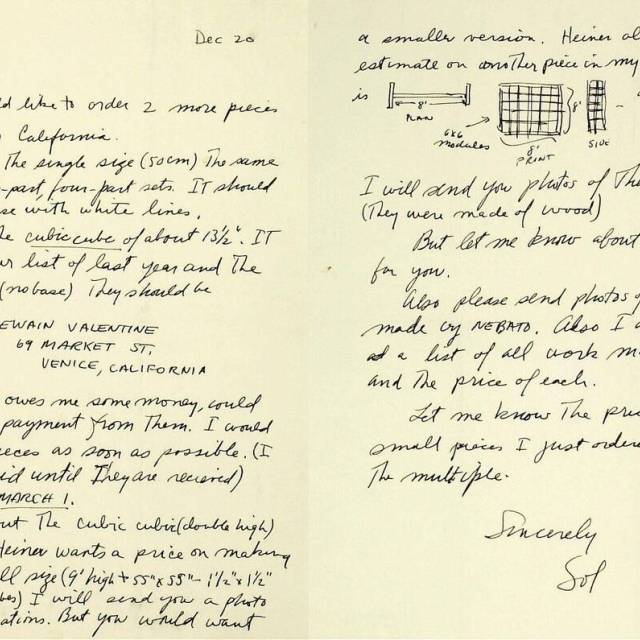 Dec 20
ld like to order 2 more pieces
California.
The single size (50cm) The same
-part, four-part sets. IT should
se with white lines.
cubic cube of about 13½". IT
r list of last year and The
(no base) They should be
EWAIN VALENTINE
69 MARKET ST.
VENICE, CALIFORNIA
owes me some money, could
payment from Them. I would
ieces as soon as possible. (I
id until They are received)
MARCH 1.
ut The cubic cube (double high)
Heiner wants a price on making
ll size (9' high + 55" x 55" - 1½" x 1½"
bes) I will send you a photo
ations. But you would want
a smaller version. Heiner al
estimate on another piece in my
is
8'
PLAN
6x6
modules
8'
8'
PRINT
SIDE
I will send you photos of The
(They were made of wood)
But let me know about
for you.
Also please send photos of
made by NEBATO. Also I
a list of all work m
and The price of each.
Let me know The pric
small pieces I just ordere
The multiple.
Sincerely
Sol